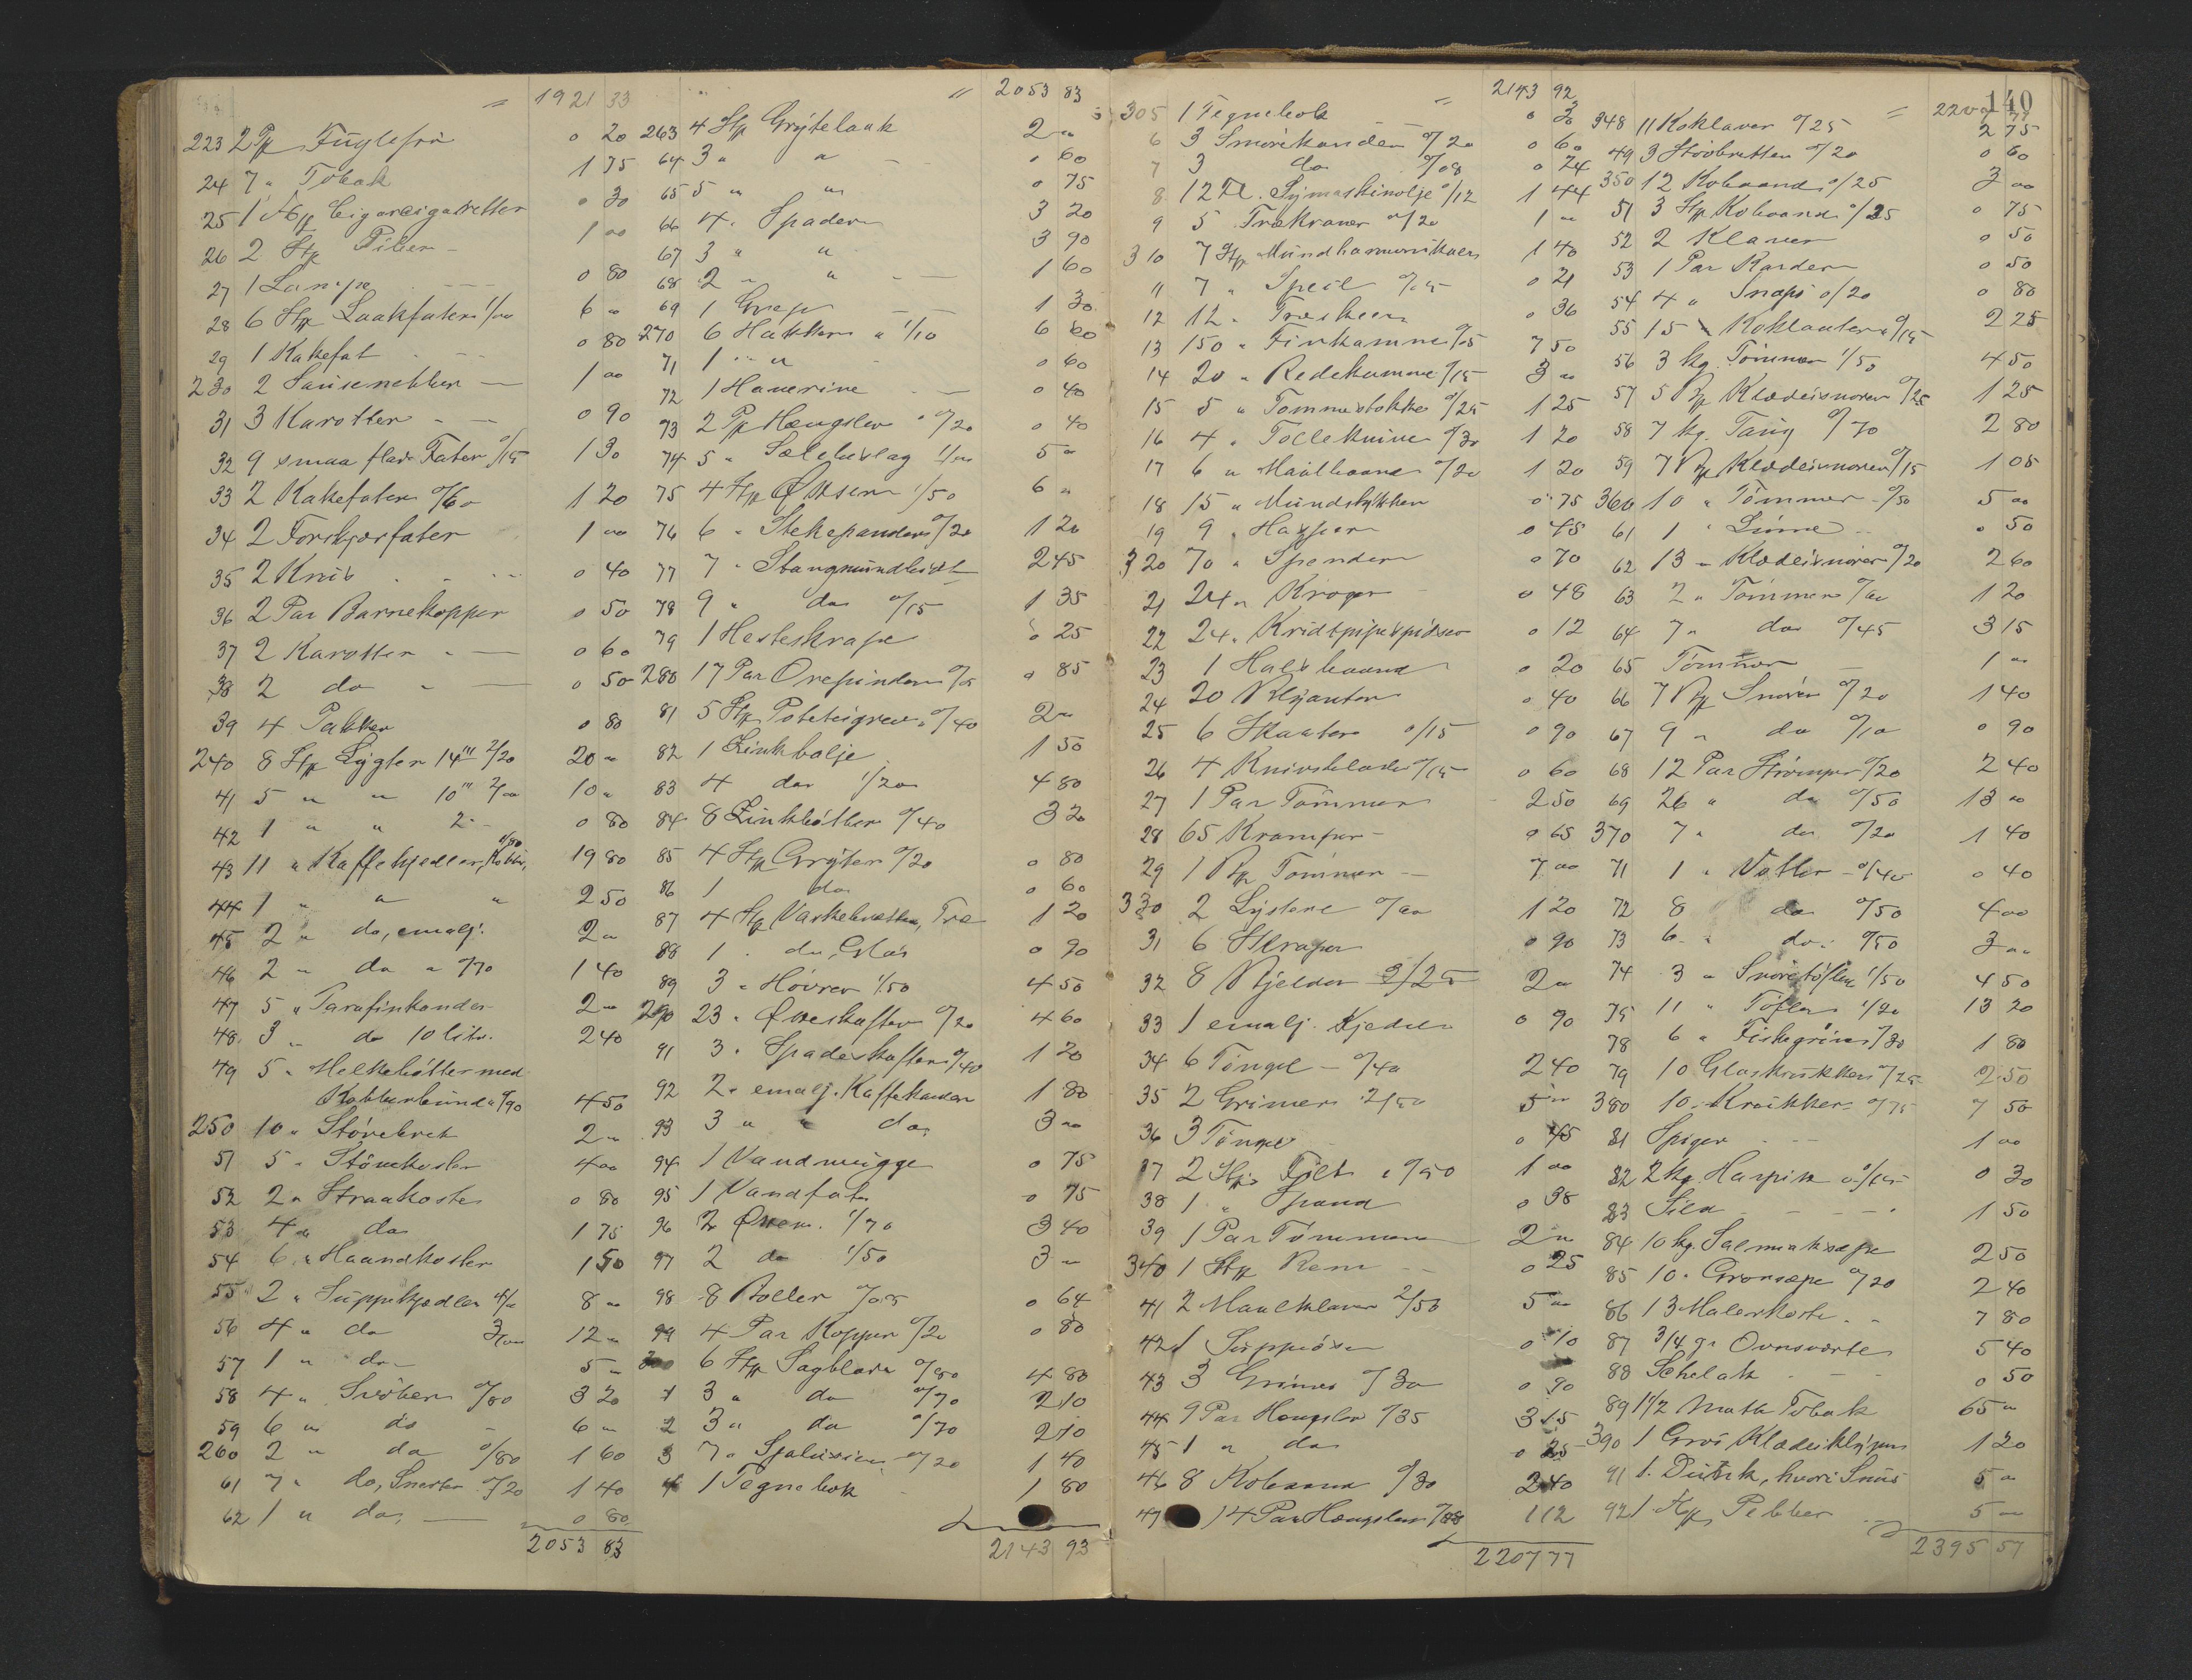 = 1921 33
223 2 Pk Fuglefrö 0 20
24 7 " Tobak 1 75
25 1 Cigarcigaretter 0 30
26 2 Stk Piber - 1 00
27 1 Lampe 0 80
28 6 Stk Laakfater 1/00 6 "
29 1 Kakefat 0 80
230 2 Sausenebber 1 00
31 3 Karotter 0 90
32 9 smaa flade Fater 0/15 1 30
33 2 Kakefater 0/60 1 20
34 2 Forskjærfater 1 00
35 2 Knib 0 40
36 2 Par Barnekopper 0 50
37 2 Karotter 0 60
38 2 do 0 50
39 4 Pakker 0 80
240 8 Stk Lygter 14''' 2/20 20 "
41 5 " " 10''' 2/00 10 "
42 1 " " 2 - 0 80
43 11 " Kaffekjedler, Kobber, 1/80 19 80
44 1 " " " 2 50
45 2 " do, emalj. 2 "
46 2 " do " 0/70 1 40
47 5 " Parafinkander 2 "
48 3 " do 10 litr. 2 40
49 5 " Melkebøtter med
Kobberbund " 0/90 4 50
250 10 " Støvebret 2 "
51 5 " Støvekoster 4 00
52 2 " Straakoste 0 80
53 4 " do 1 75
54 6 " Haandkoster 1 50
55 2 " Suppekjedler 4/00 8 "
56 4 " do 3/00 12 "
57 1 " do 5 "
58 4 " 0/80 3 20
59 6 " do - 6 "
260 2 " do 0/80 1 60
61 7 " do, 0/20 1 40
62 1 " do, 0 80
2053 83
" 2053 83
263 4 Stk Grytelaak 2 "
64 3 " " - 0 60
65 5 " " 0 75
66 4 " Spader 3 20
67 3 " " 3 90
68 2 " " 1 60
69 1 Grep 1 30
270 6 Hakker " 1/10 6 60
71 1 " " 0 60
72 1 Haverive 0 40
73 2 Pk Hængsler " 0/20 0 40
74 5 " Selebeslag 1/00 5 "
75 4 Stk Økser 1/50 6 "
76 6 " Stekepander 0/20 1 20
77 7 " Stangmundbidt 2 45
78 9 " do 0/15 1 35
79 1 Hesteskrape 0 25
280 17 Par Orepinder 0/05 0 85
81 5 Stk Potetesgrev " 0/40 2 "
82 1 Zinkbalje 1 50
83 4 do 1/20 4 80
84 8 Zinkbøtter 0/40 3 20
85 4 Stk Gryter 0/20 0 80
86 1 do 0 60
87 4 Stk Vaskebrætter, Træ 1 20
88 1 do, Glas 0 90
89 3 " Høvrer 1/50 4 50
290 23 " Øxeskafter 0/20 4 60
91 3 " Spadeskafter 0/40 1 20
92 2 " emalj. Kaffekander 1 80
93 3 " " do, 3 00
94 1 Vandmugge 0 75
95 1 Vandfat 0 75
96 2 Øxer 1/70 3 40
97 2 do 1/50 3 "
98 8 Boller 0/08 0 64
99 4 Par Kopper 0/20 0 80
300 6 Stk Sagblade 0/80 4 80
1 3 " do 0/70 2 10
2 3 " do 0/70 2 10
3 7 " 0/20 1 40
4 1 Tegnebok 1 80
2143 93
= 2143 92
305 1 Tegnebok 0 30
6 3 Smørekander 0/20 0 60
7 3 do 0/08 0 24
8 12 Fl. Symaskinolje 0/12 1 44
9 5 Trækraner 0/20 1 "
310 7 Stk Mundharmonikaer 1 40
11 7 " Speil 0/03 0 21
12 12 " Træskeer 0 36
13 150 " Finkamme 0/05 7 50
14 20 " Redekamme 0/15 3 "
15 5 " Tommestokke 0/25 1 25
16 4 " Tolleknive 0/30 1 20
17 6 " Maalbaand 0/20 1 20
18 15 " Mundstykker 0 75
19 9 " Hasper 0 45
320 70 " Spender 0 70
21 24 " Kroger 0 48
22 24 " Kridtpipespidser 0 12
23 1 Halsbaand 0 20
24 20 Blyanter 0 40
25 6 Skaater 0/15 0 90
26 4 Knivsblade 0/15 0 60
27 1 Par Tømmer 2 50
28 65 Kramper - 0 65
29 1 Pk Tømmer - 7 00
330 2 Lystere 0/60 1 20
31 6 Skraper 0 90
32 8 Bjelder 0/25 2 "
33 1 emalj. Kjedel 0 90
34 6 Tønge - 0/40 2 40
35 2 Grimer 2/50 5 "
36 3 Tønge 0 45
37 2 Stk Filt 0/50 1 00
38 1 " Spand 0 38
39 1 Par Tømmer 2 "
340 1 Stk Rem 0 25
41 2 Maulklaver 2/50 5 "
42 1 Suppeøse 0 10
43 3 Grimer 0/30 0 90
44 9 Par Hengsler 0/35 3 15
45 1 " do 0 25
46 8 Kobaand 0/30 2 40
47 14 Par Hængsler 0/08 1 12
2207 77
140
= 2207 77
348 11 Koklaver 0/25 2 75
49 3 Støvbretter 0/20 0 60
350 12 Kobaand 0/25 3 00
51 3 Stk Kobaand 0/25 0 75
52 2 Klaver 0 50
53 1 Par Karder 0 50
54 4 " Snaps 0/20 0 80
55 15 " Koklauter 0/15 2 25
56 3 kg. Tømmer 1/50 4 50
57 5 Pk Klædesnorer 0/25 1 25
58 7 kg. Taug 0/40 2 80
59 7 Pk Klædesnorer 0/15 1 05
360 10 " Tømmer 0/50 5 00
61 1 " Linne 0 50
62 13 " Klædesnorer 0/20 2 60
63 2 " Tømmer 0/60 1 20
64 7 " do 0/45 3 15
65 Tømmer 1 "
66 7 Pk Snører 0/20 1 40
67 9 " do 0/10 0 90
68 12 Par Strømper 0/20 2 40
69 26 " do 0/50 13 00
370 7 " do 0/20 1 40
71 1 " Votter - 0/40 0 40
72 8 do 0/50 4 00
73 6 " do 0/50 3 "
74 3 " Snøretøfler 1/50 4 50
75 11 " Tøfler 1/20 13 20
78 6 " Fiskegriner 0/30 1 80
79 10 Glaskrukker 0/25 2 50
380 10 " Krukker 0/75 7 50
81 Spiger 1 00
82 2 kg. Harpix 0/15 0 30
83 Sild 1 50
84 10 kg. Salmiaksæpe 2 50
85 10 " Grønsæpe 0/20 2 40
86 13 Malerkoste 7 80
87 3/4 gr. Ovnsværte 5 40
88 Schelak 0 50
89 1 1/2 Matte Tobak 65 "
390 1 Gros Klædesklyper 1 20
91 1 Dunk, hvori Snus 5 "
92 1 Pebber 5 "
2395 57